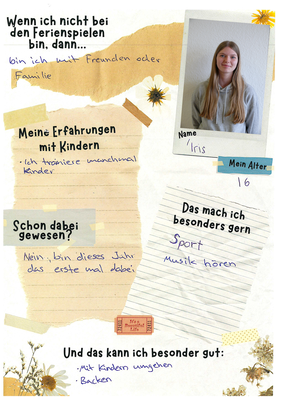 Wenn ich nicht bei
den Ferienspielen
bin, dann...
bin ich mit Freunden oder
Familie
Name
Iris
Mein Alter
16
Meine Erfahrungen
mit Kindern
• Ich trainiere manchmal
Kinder
Das mach ich
besonders gern
Sport
Musik hören
Schon dabei
gewesen?
Nein, bin dieses Jahr
das erste mal dabei
Und das kann ich besonder gut:
• Mit Kindern umgehen
• Backen